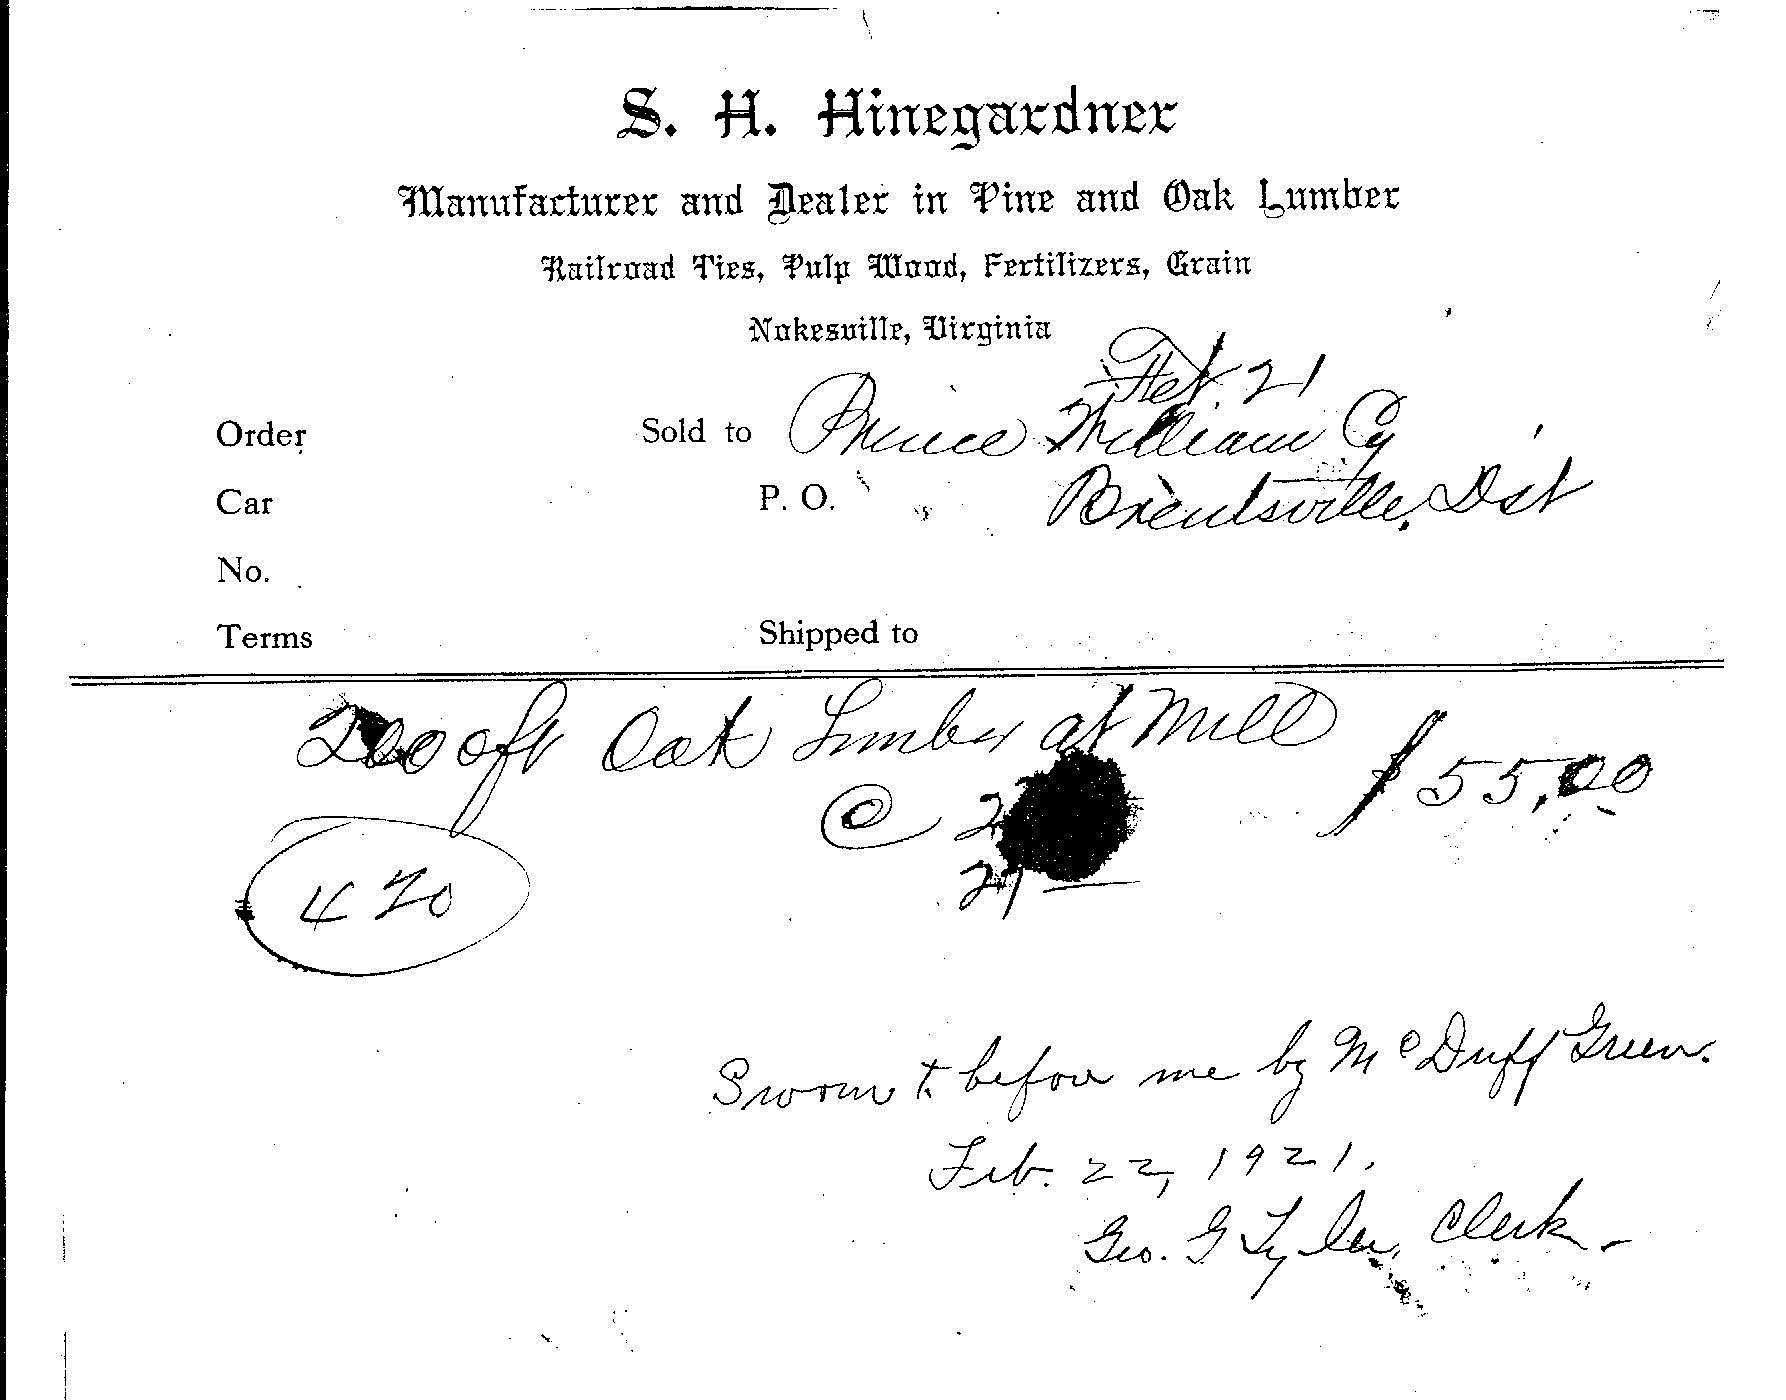 S. H. Hinegardner
Manufacturer and Dealer in Pine and Oak Lumber
Railroad Ties, Pulp Wood, Fertilizers, Grain
Nokesville, Virginia
Feb. 21
Order Sold to Prince William Cy
Car P. O. Brentsville, Dst
No.
Terms Shipped to
2000 ft Oak Lumber at Mill $55.00
@ 2
27
420
Sworn to before me by McDuff Green.
Feb. 22, 1921.
Geo. G Tyler, Clerk.